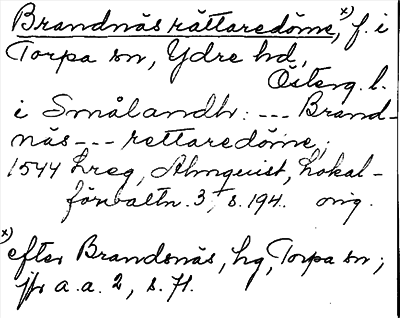 Brandnäs rättaredöme,ˣ⁾ f. i
Torpa sn, Ydre hd,
Österg. l.
i Smålandh: --- Brand-
näs --- rettaredöme,
1544 Lreg, Almquist, Lokal-
förvaltn. 3, s. 194. orig.
ˣ⁾ efter Brandsnäs, hg, Torpa sn;
jfr a.a. 2, s. 71.